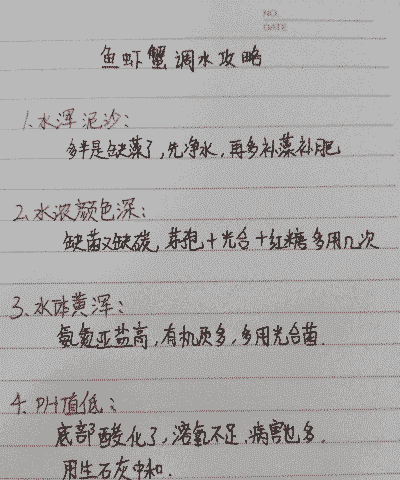 NO
DATE
鱼虾蟹调水攻略
1.水浑泥沙:
多半是缺藻了,先净水,再多补藻补肥
2.水浓颜色深:
缺菌又缺碳,芽孢+光合+红糖多用几次
3.水体黄浑:
氨氮亚盐高,有机质多,多用光合菌.
4.PH值低:
底部酸化了,溶氧不足,病害也多.
用生石灰中和.